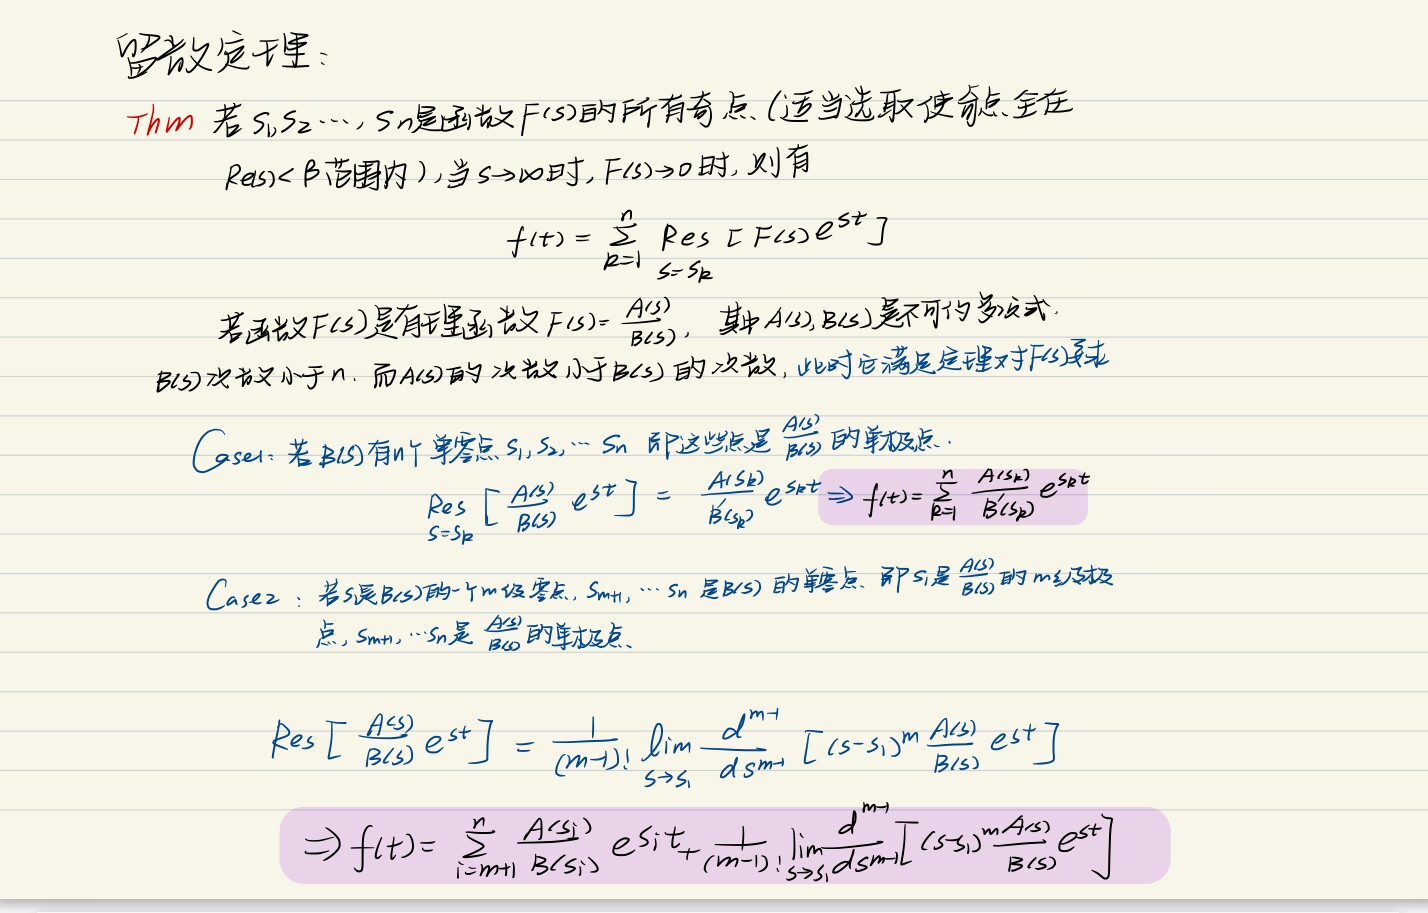 留数定理:
Thm 若 S₁, S₂ ⋯, Sn是函数F(s)的所有奇点(适当选取使奇点全在
Re(s)<β范围内),当s→∞时, F(s)→0时, 则有
f(t) = \sum_{k=1}^{n} Res_{s=s_k} [F(s) e^{st}]
若函数F(s)是有理函数F(s)= \frac{A(s)}{B(s)}, 其中A(s), B(s)是不可约多项式.
B(s)次数小于n. 而A(s)的次数小于B(s)的次数, 此时它满足定理对F(s)要求
Case1: 若B(s)有n个单零点 s₁, s₂, ⋯ sn 即这些点是 \frac{A(s)}{B(s)} 的单极点.
Res_{s=s_k} [\frac{A(s)}{B(s)} e^{st}] = \frac{A(s_k)}{B'(s_k)} e^{s_k t} ⇒ f(t) = \sum_{k=1}^{n} \frac{A(s_k)}{B'(s_k)} e^{s_k t}
Case2: 若s₁是B(s)的一个m级零点, s_{m+1}, ⋯ sn 是B(s)的单零点. 即s₁是 \frac{A(s)}{B(s)} 的m级极
点, s_{m+1}, ⋯sn是 \frac{A(s)}{B(s)} 的单极点.
Res [\frac{A(s)}{B(s)} e^{st}] = \frac{1}{(m-1)!} \lim_{s→s_1} \frac{d^{m-1}}{ds^{m-1}} [(s-s_1)^m \frac{A(s)}{B(s)} e^{st}]
⇒ f(t) = \sum_{i=m+1}^{n} \frac{A(s_i)}{B(s_i)} e^{s_i t} + \frac{1}{(m-1)!} \lim_{s→s_1} \frac{d^{m-1}}{ds^{m-1}} [(s-s_1)^m \frac{A(s)}{B(s)} e^{st}]